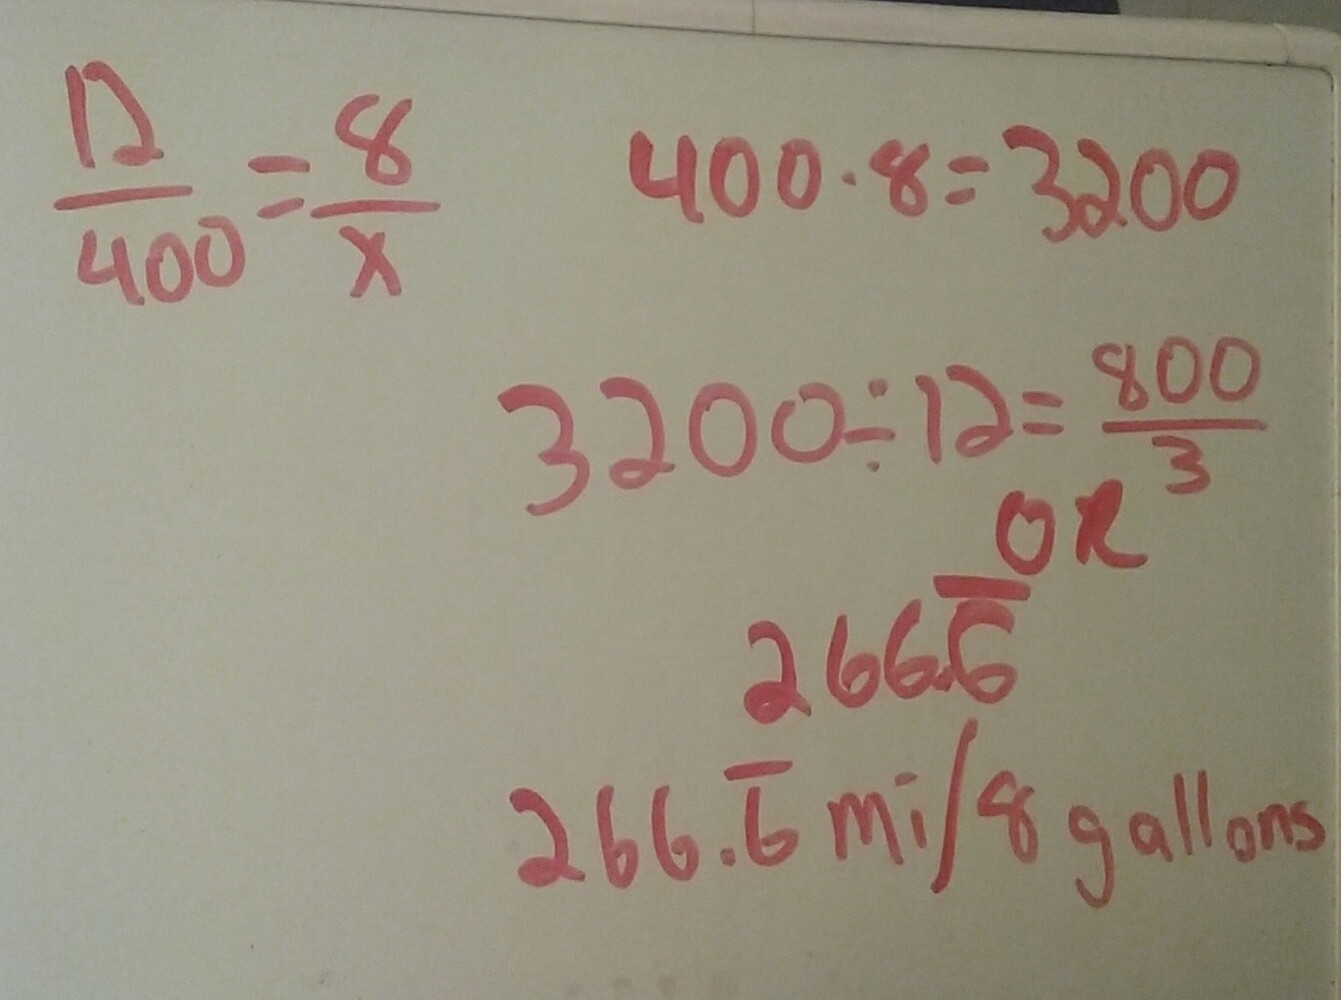 12/400 = 8/x
400·8=3200
3200÷12= 800/3
OR
266.6̅
266.6̅ mi/8 gallons